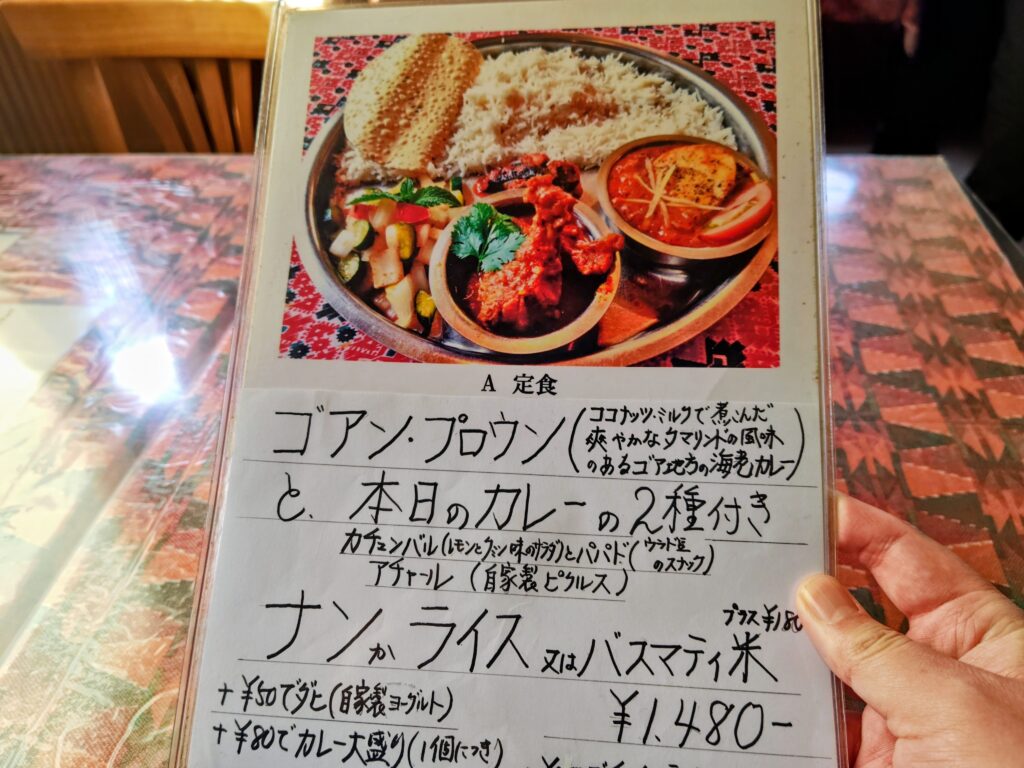 A 定食
ゴアン・プロウン(ココナッツ・ミルクで煮込んだ
爽やかなタマリンドの風味
のあるゴア地方の海老カレー)
と、本日のカレーの2種付き
カチュンバル(レモンとクミン味のサラダ)とパパド(ウラド豆
のスナック)
アチャール(自家製ピクルス)
プラス¥180
ナンかライス又はバスマティ米
+¥50でダヒ(自家製ヨーグルト)
¥1.480-
+¥80でカレー大盛り(1個につき)